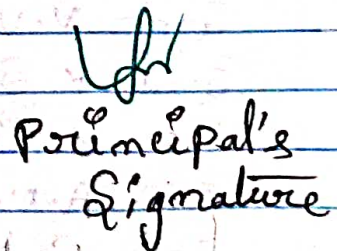 Principal's
Signature